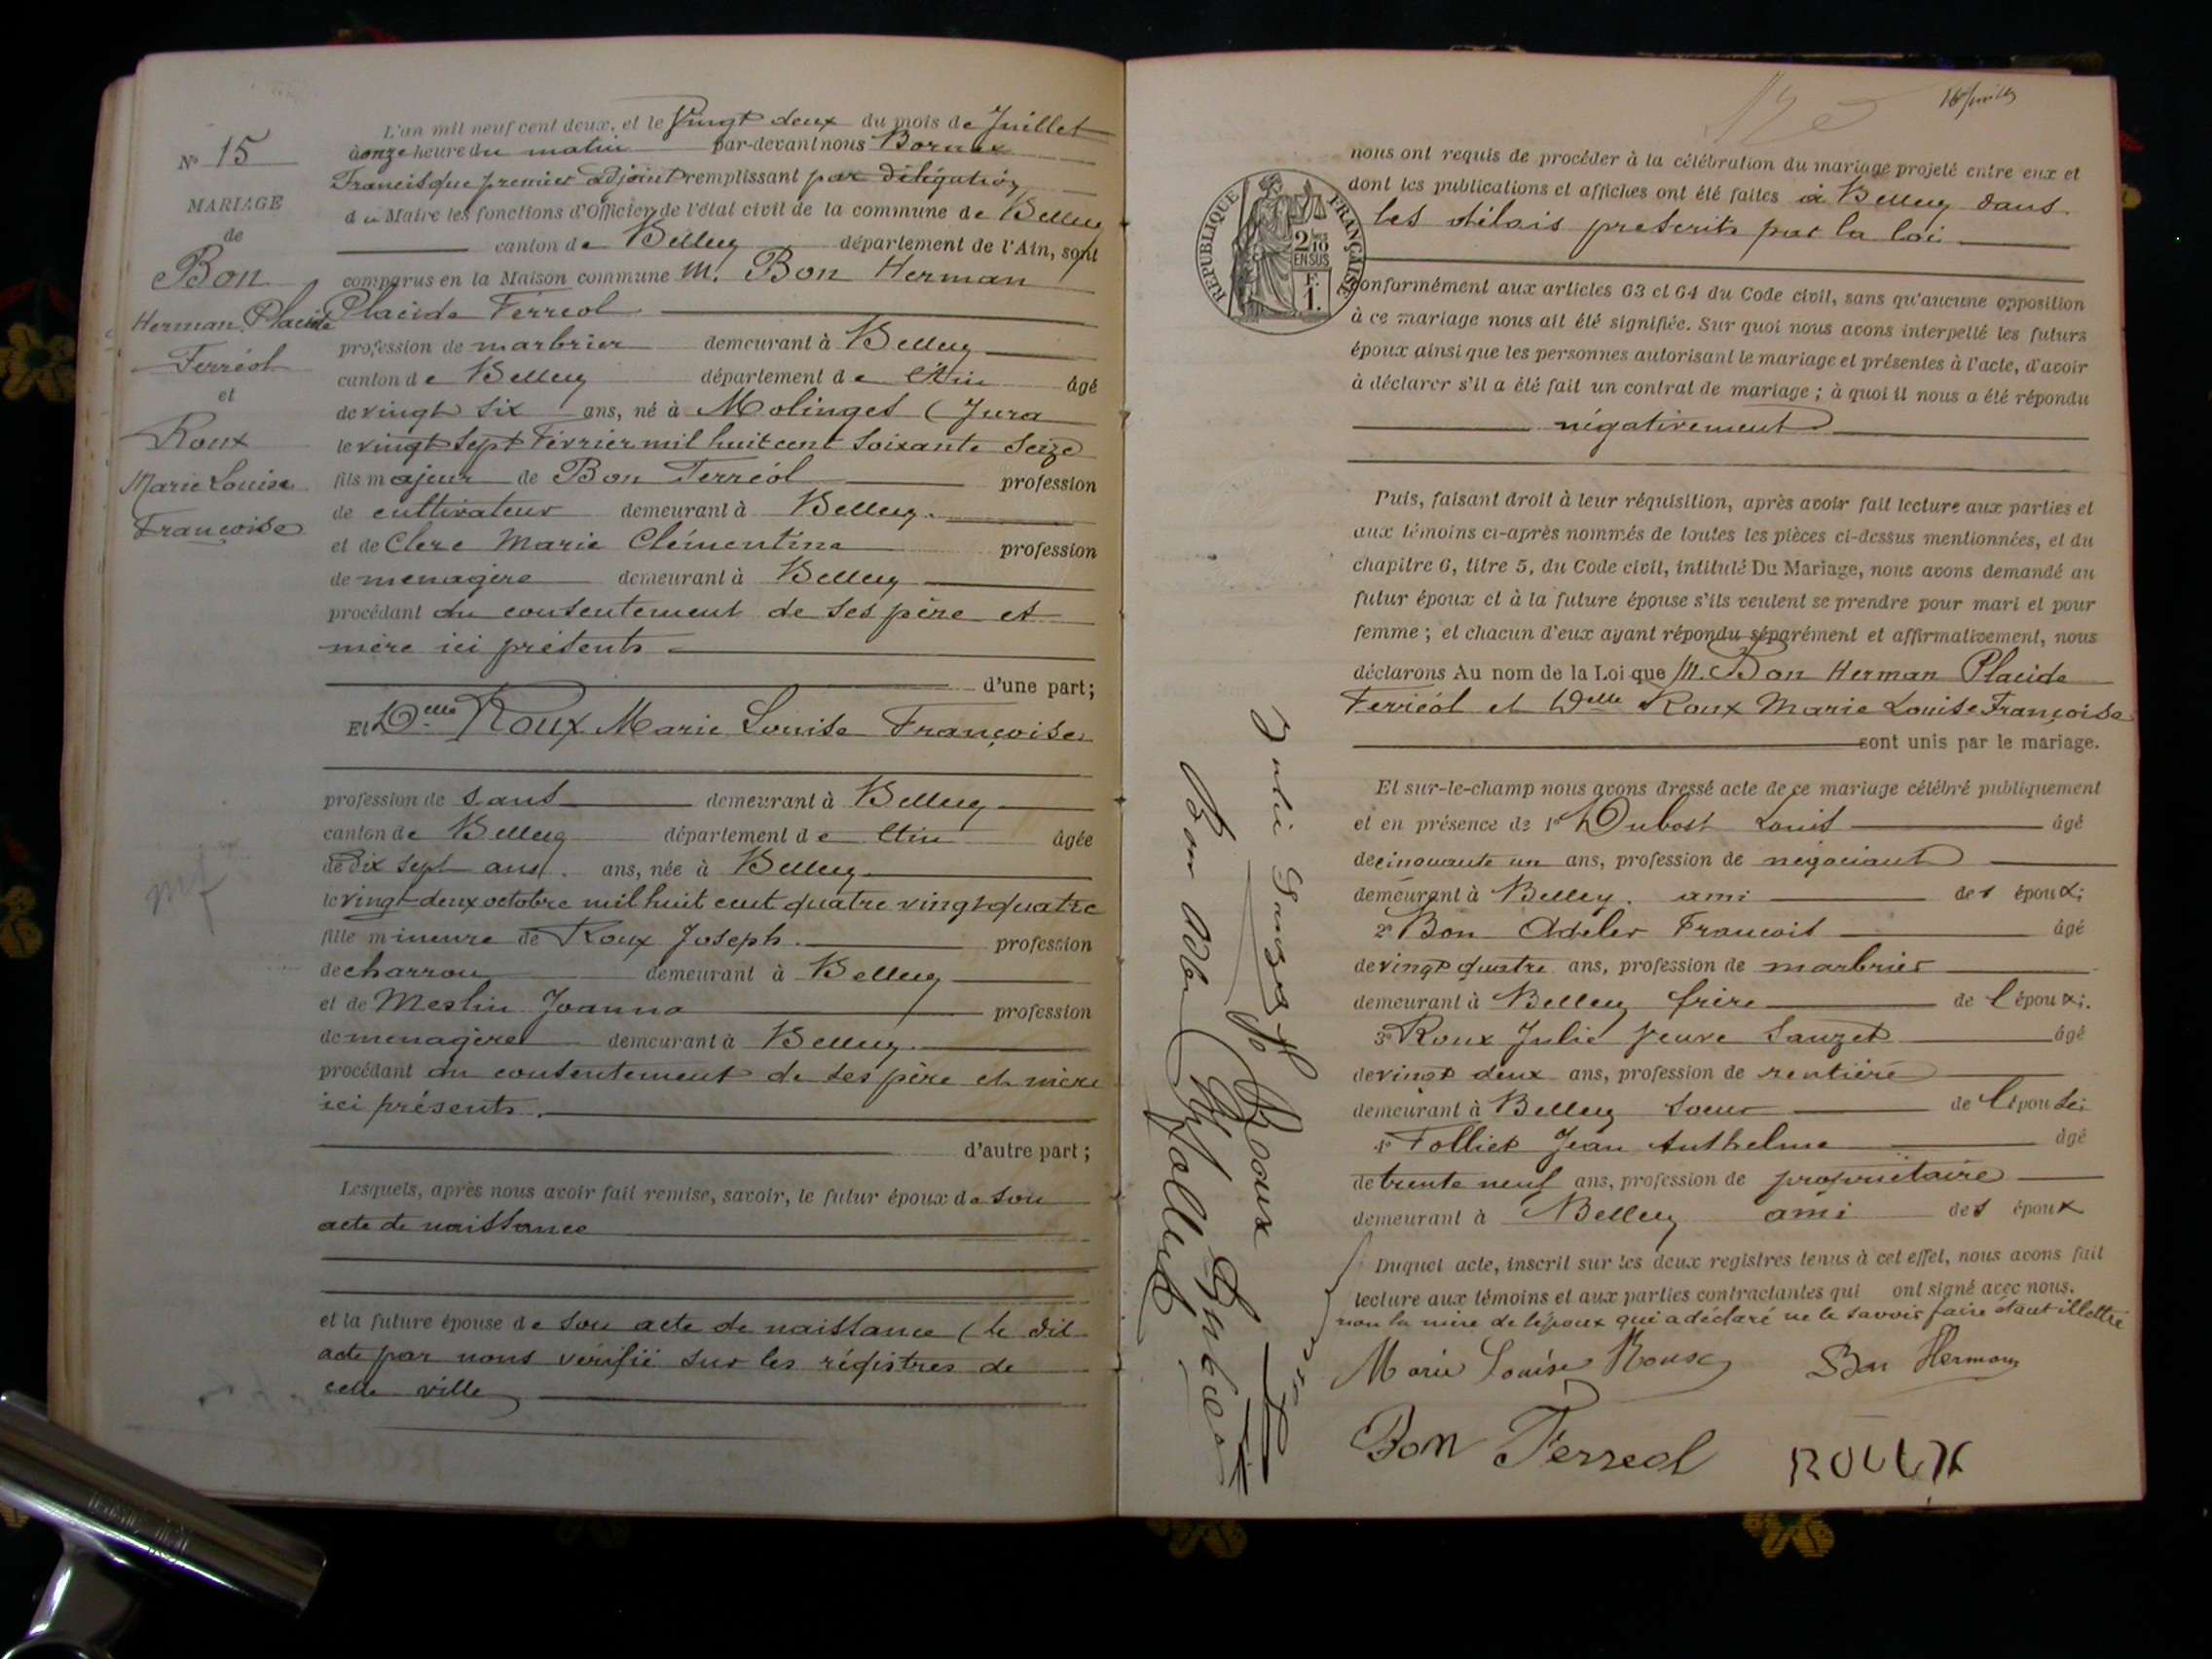 N° 15
MARIAGE
de
Bon
Herman Placide
Ferréol
et
Roux
Marie Louise
Françoise
L'an mil neuf cent deux, et le Vingt deux du mois de Juillet
à onze heure du matin par-devant nous Bornex
Francisque premier adjoint remplissant par délégation
du Maire les fonctions d'Officier de l'état civil de la commune de Belley
canton de Belley département de l'Ain, sont
comparus en la Maison commune M. Bon Herman
Placide Ferreol
profession de marbrier demeurant à Belley
canton de Belley département de Ain âgé
de vingt six ans, né à Molinges (Jura
le vingt sept Février mil huit cent soixante seize
fils majeur de Bon Ferréol profession
de cultivateur demeurant à Belley.
et de Clere Marie Clémentine profession
de menagère demeurant à Belley
procédant du consentement de ses père et
mère ici présents
d'une part;
Et Delle Roux Marie Louise Françoise
profession de sans demeurant à Belley
canton de Belley département de Ain âgée
de dix sept ans. ans, née à Belley
le vingt-deux octobre mil huit cent quatre vingt quatre
fille mineure de Roux Joseph. profession
de charron demeurant à Belley
et de Meslin Joanna profession
de menagère demeurant à Belley.
procédant du consentement de ses père et mère
ici présents.
d'autre part;
Lesquels, après nous avoir fait remise, savoir, le futur époux de son
acte de naissance
et la future épouse de son acte de naissance (le dit
acte par nous vérifié sur les régistres de
cette ville
RÉPUBLIQUE FRANÇAISE
2/10
EN SUS
F.
1.
nous ont requis de procéder à la célébration du mariage projeté entre eux et
dont les publications et affiches ont été faites à Belley dans
les délais prescrits par la loi
conformément aux articles 63 et 64 du Code civil, sans qu'aucune opposition
à ce mariage nous ait été signifiée. Sur quoi nous avons interpellé les futurs
époux ainsi que les personnes autorisant le mariage et présentes à l'acte, d'avoir
à déclarer s'il a été fait un contrat de mariage; à quoi il nous a été répondu
négativement
Puis, faisant droit à leur réquisition, après avoir fait lecture aux parties et
aux témoins ci-après nommés de toutes les pièces ci-dessus mentionnées, et du
chapitre 6, titre 5, du Code civil, intitulé Du Mariage, nous avons demandé au
futur époux et à la future épouse s'ils veulent se prendre pour mari et pour
femme; et chacun d'eux ayant répondu séparément et affirmativement, nous
déclarons Au nom de la Loi que M. Bon Herman Placide
Ferréol et Delle Roux Marie Louise Françoise
sont unis par le mariage.
Et sur-le-champ nous avons dressé acte de ce mariage célébré publiquement
et en présence de 1° Dubost Louis âgé
de cinquante un ans, profession de négociant
demeurant à Belley. ami des époux;
2° Bon Adeler Francois âgé
de vingt quatre ans, profession de marbrier
demeurant à Belley frère de l'époux;
3° Roux Julie Veuve Sauzet âgé
de vingt deux ans, profession de rentière
demeurant à Belley soeur de l'épouse;
4° Folliet Jean Anthelme âgé
de trente neuf ans, profession de propriétaire
demeurant à Belley ami des époux
Duquel acte, inscrit sur les deux registres tenus à cet effet, nous avons fait
lecture aux témoins et aux parties contractantes qui ont signé avec nous.
non la mère de l'époux qui a déclaré ne le savoir faire étant illettré
Marie Louise Roux Bon Herman
Bon Ferreol ROUX
Julie Sauzet Roux
Bon Folliet Dubost